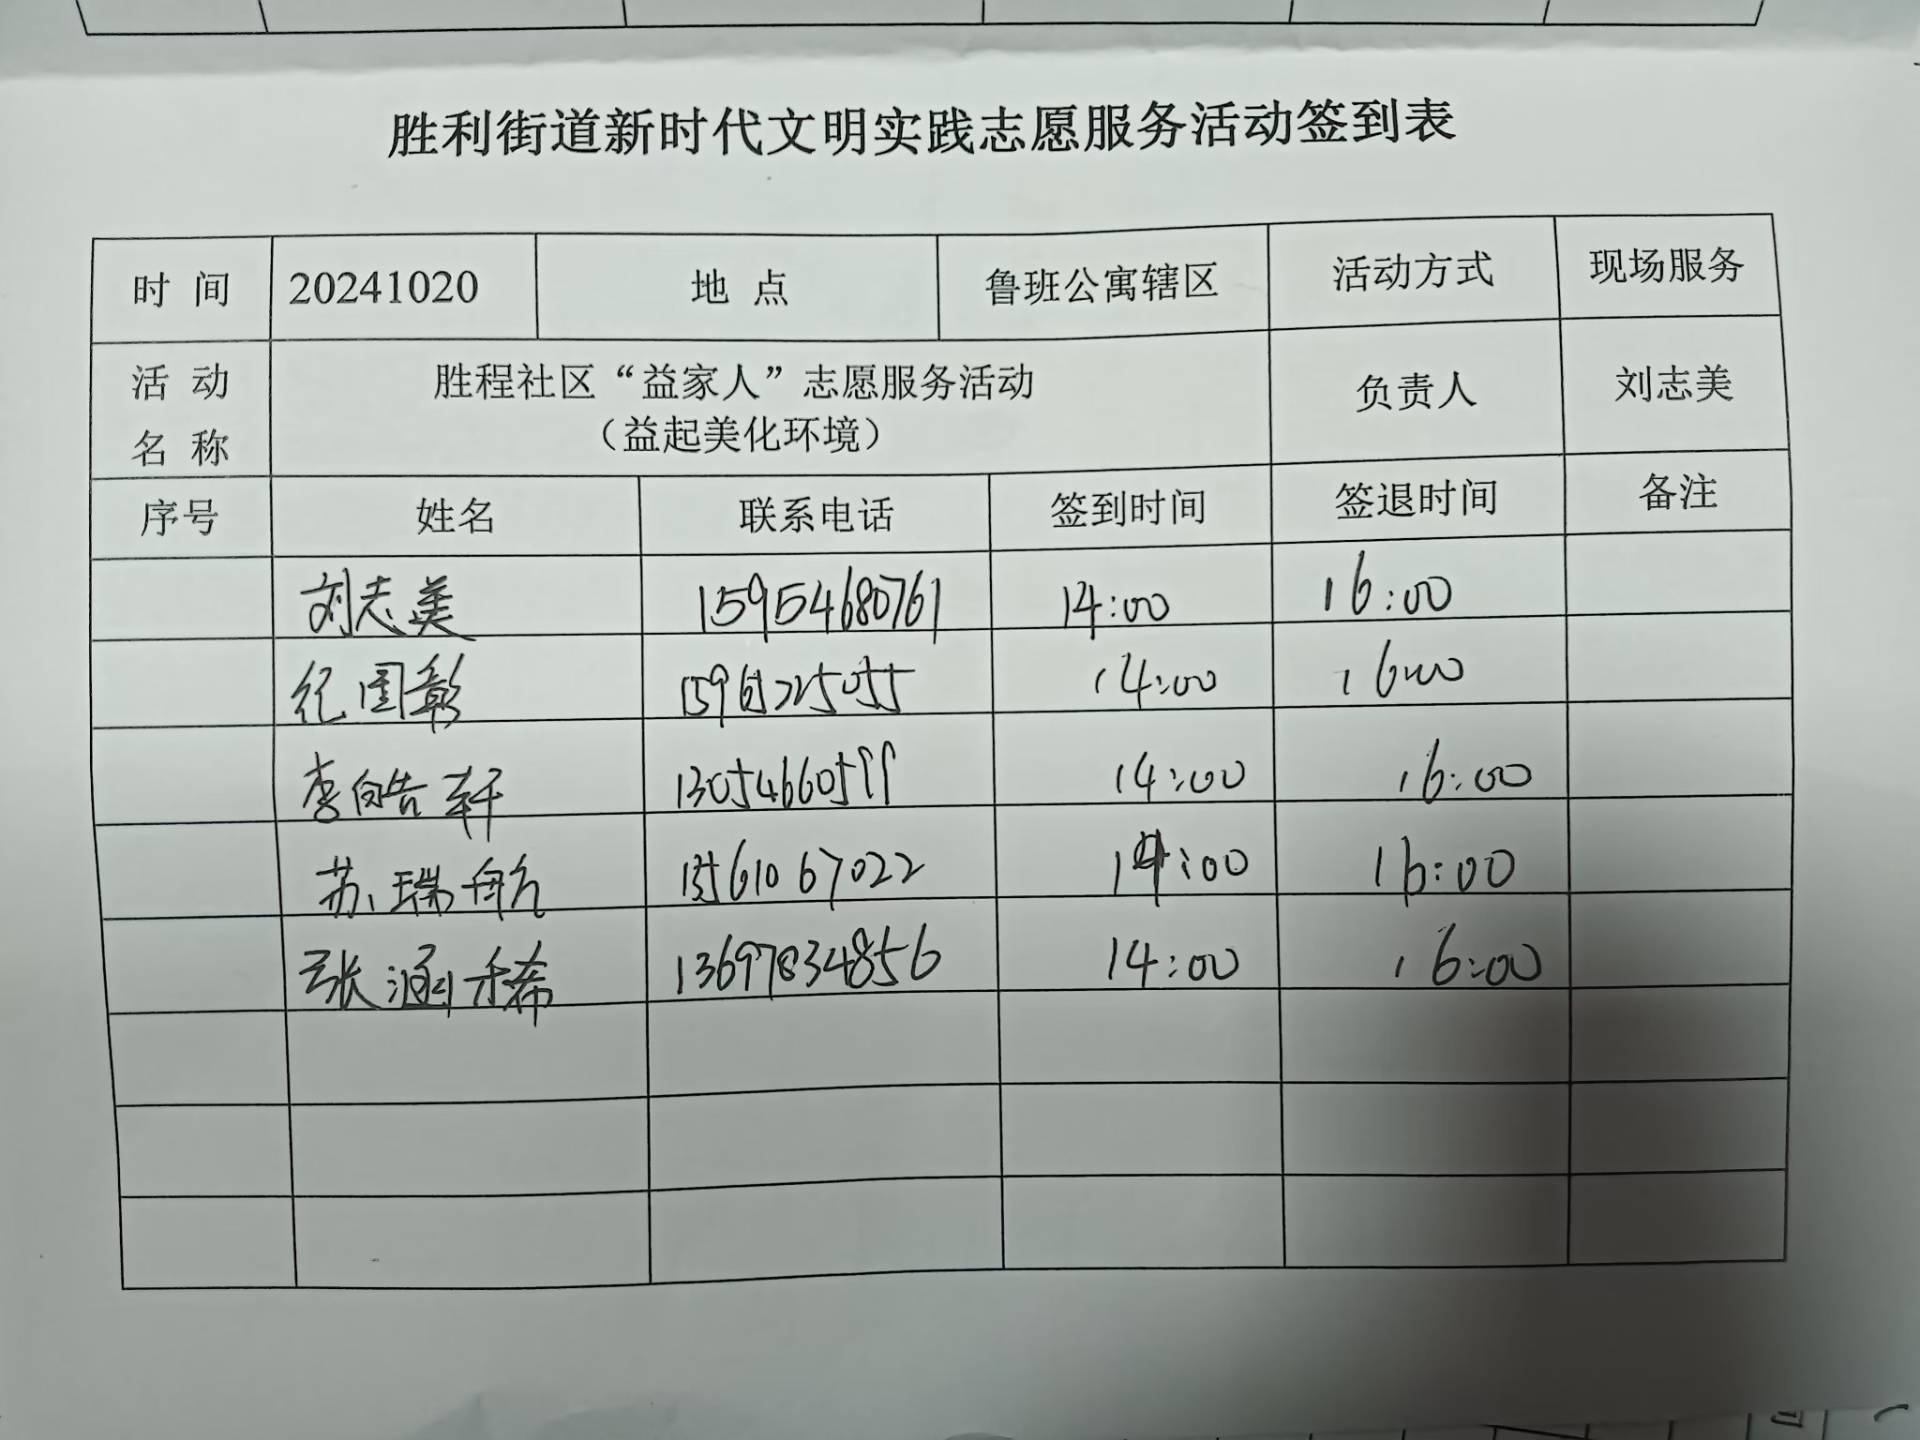 胜利街道新时代文明实践志愿服务活动签到表
时 间 20241020 地 点 鲁班公寓辖区 活动方式 现场服务
活 动 名 称 胜程社区“益家人”志愿服务活动 负责人 刘志美
（益起美化环境）
序号 姓名 联系电话 签到时间 签退时间 备注
刘志美 15954680761 14:00 16:00
纪国彰 14:00 16:00
李皓轩 13054660599 14:00 16:00
苏瑞航 13561067022 14:00 16:00
张涵希 13697834856 14:00 16:00